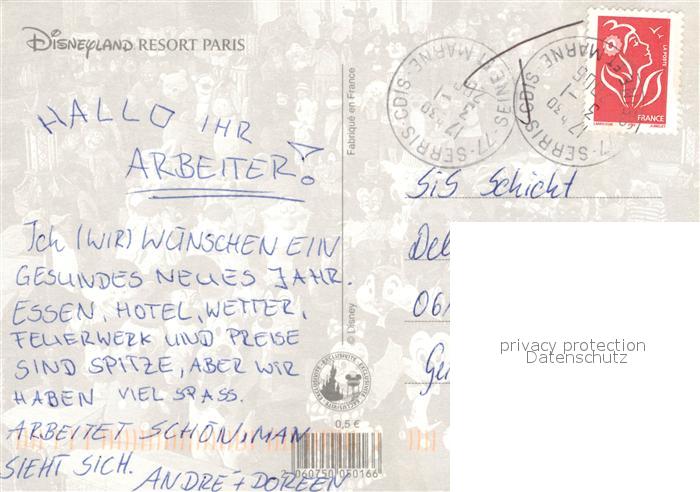 DISNEYLAND RESORT PARIS
HALLO IHR
ARBEITER!
Ich (WIR) WÜNSCHEN EIN
GESUNDES NEUES JAHR.
ESSEN, HOTEL, WETTER,
FEUERWERK UND PREISE
SIND SPITZE, ABER WIR
HABEN VIEL SPASS.
ARBEITET SCHÖN, MAN
SIEHT SICH.
ANDRE + DOREEN
Fabriqué en France
© Disney
EXCLUSIVITÉ
0,5 €
2 060750 050166
77-SERRIS-CDIS
SEINE ET MARNE
LA POSTE
FRANCE
SiS Schicht
06/
privacy protection
Datenschutz